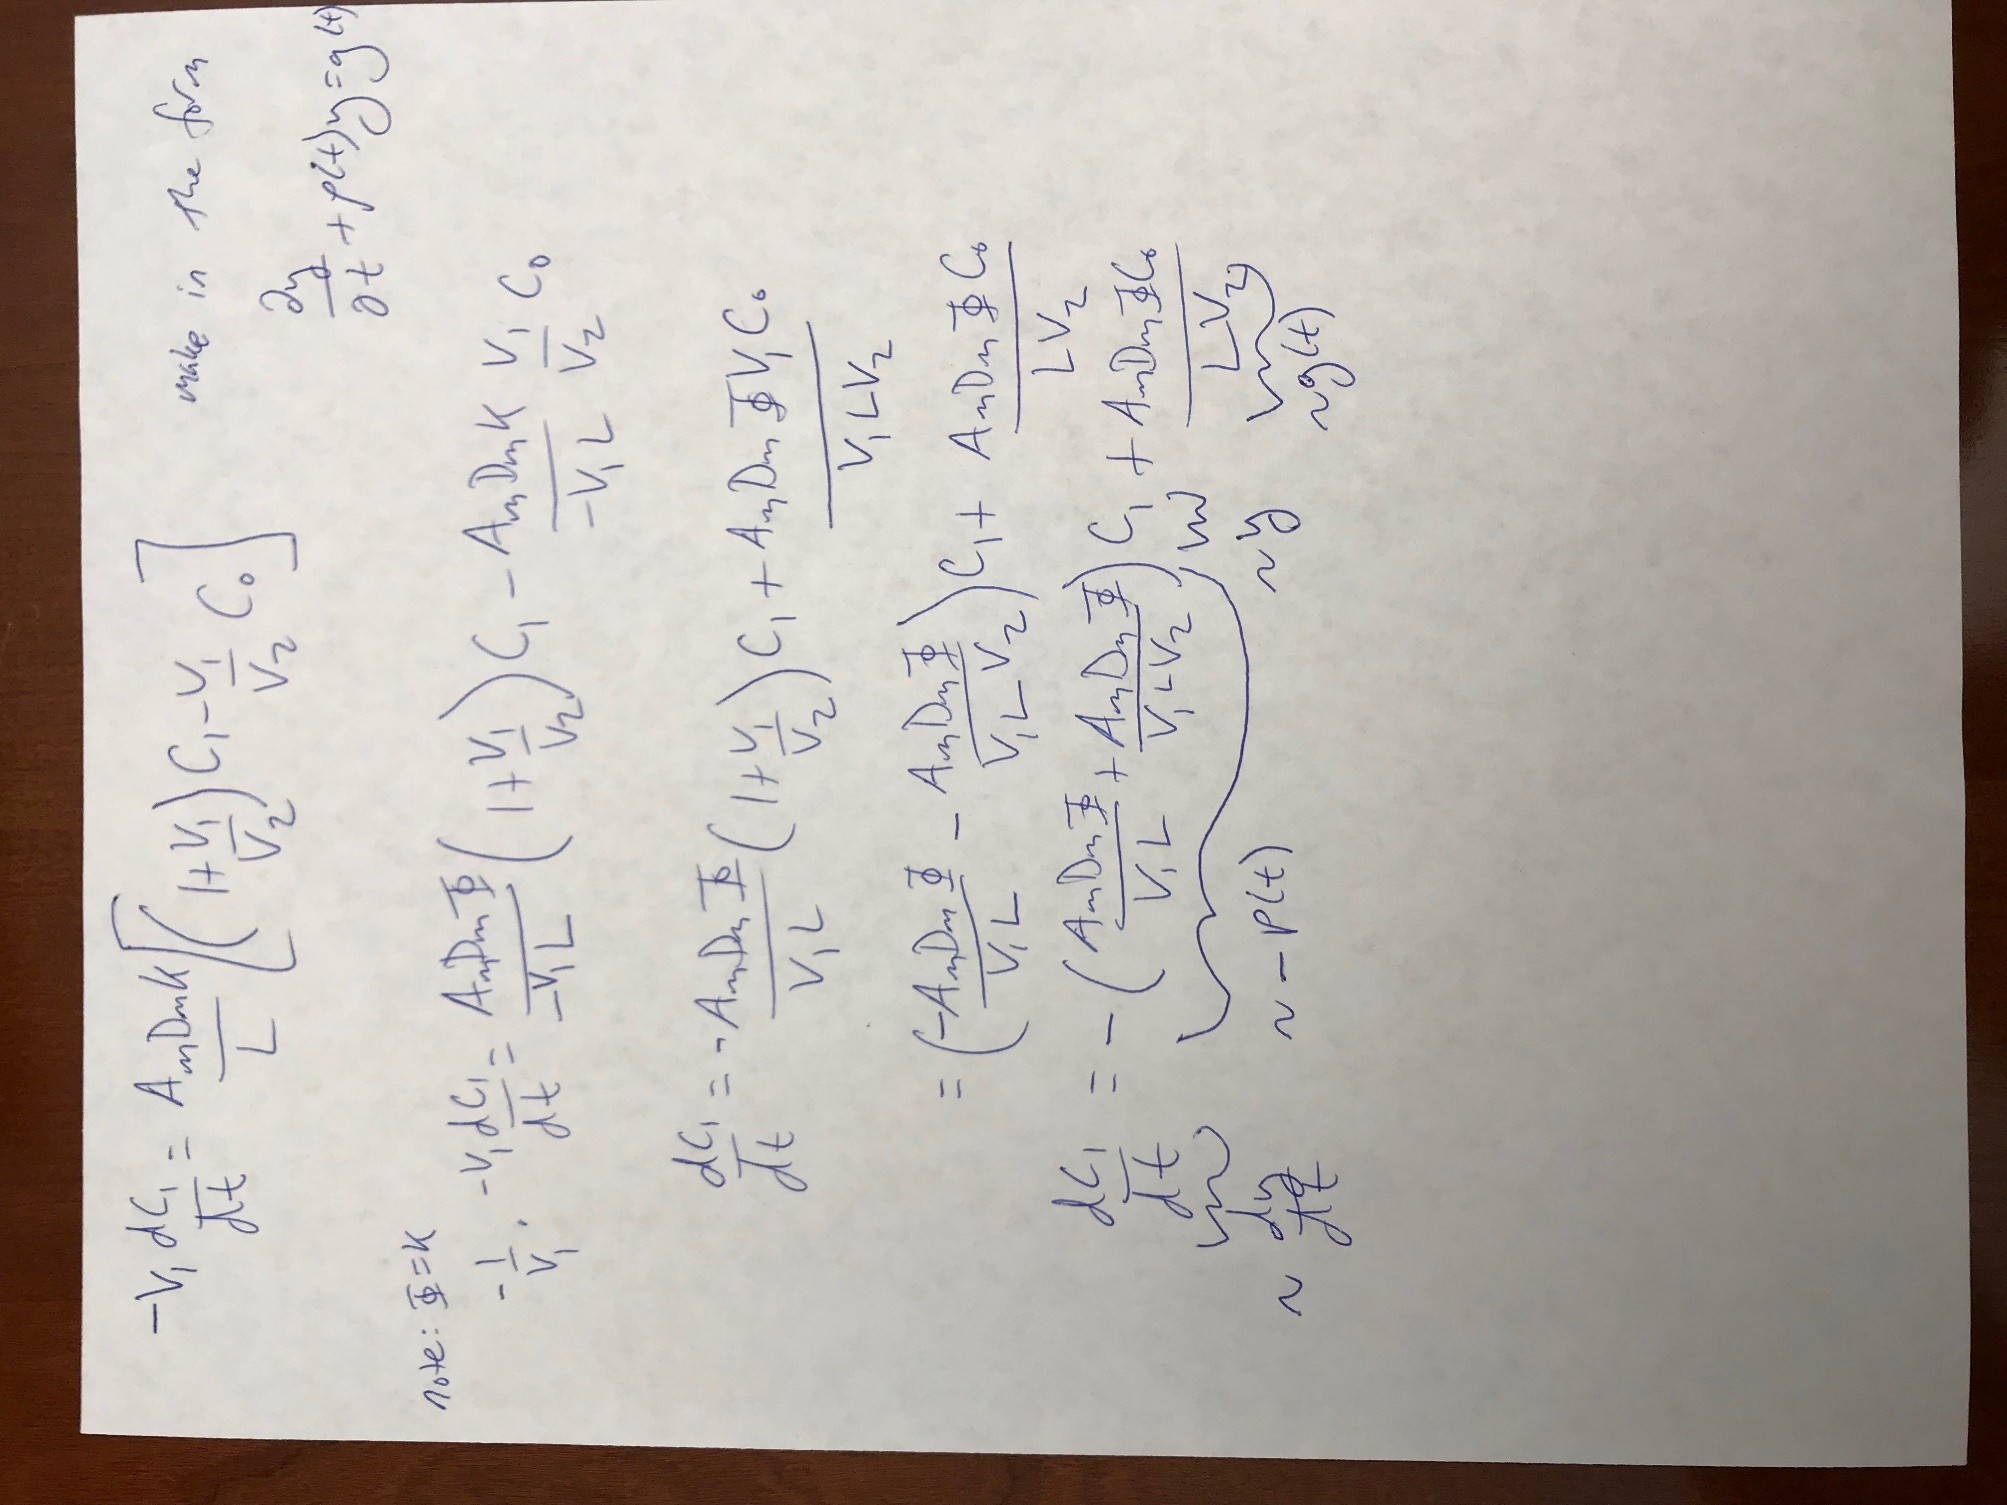 -V₁ dC₁/dt = AₘDₘK/L [(1+V₁/V₂)C₁ - V₁/V₂ C₀]
make in the form
∂y/∂t + p(t)y = g(t)
note: Φ=K
-1/V₁ · -V₁ dC₁/dt = AₘDₘΦ/-V₁L (1+V₁/V₂)C₁ - AₘDₘK/-V₁L V₁/V₂ C₀
dC₁/dt = -AₘDₘΦ/V₁L (1+V₁/V₂)C₁ + AₘDₘΦV₁C₀/V₁LV₂
= (-AₘDₘΦ/V₁L - AₘDₘΦ/V₁LV₂)C₁ + AₘDₘΦC₀/LV₂
dC₁/dt = -(AₘDₘΦ/V₁L + AₘDₘΦ/V₁LV₂)C₁ + AₘDₘΦC₀/LV₂
~ dy/dt ~ -p(t) ~y ~g(t)